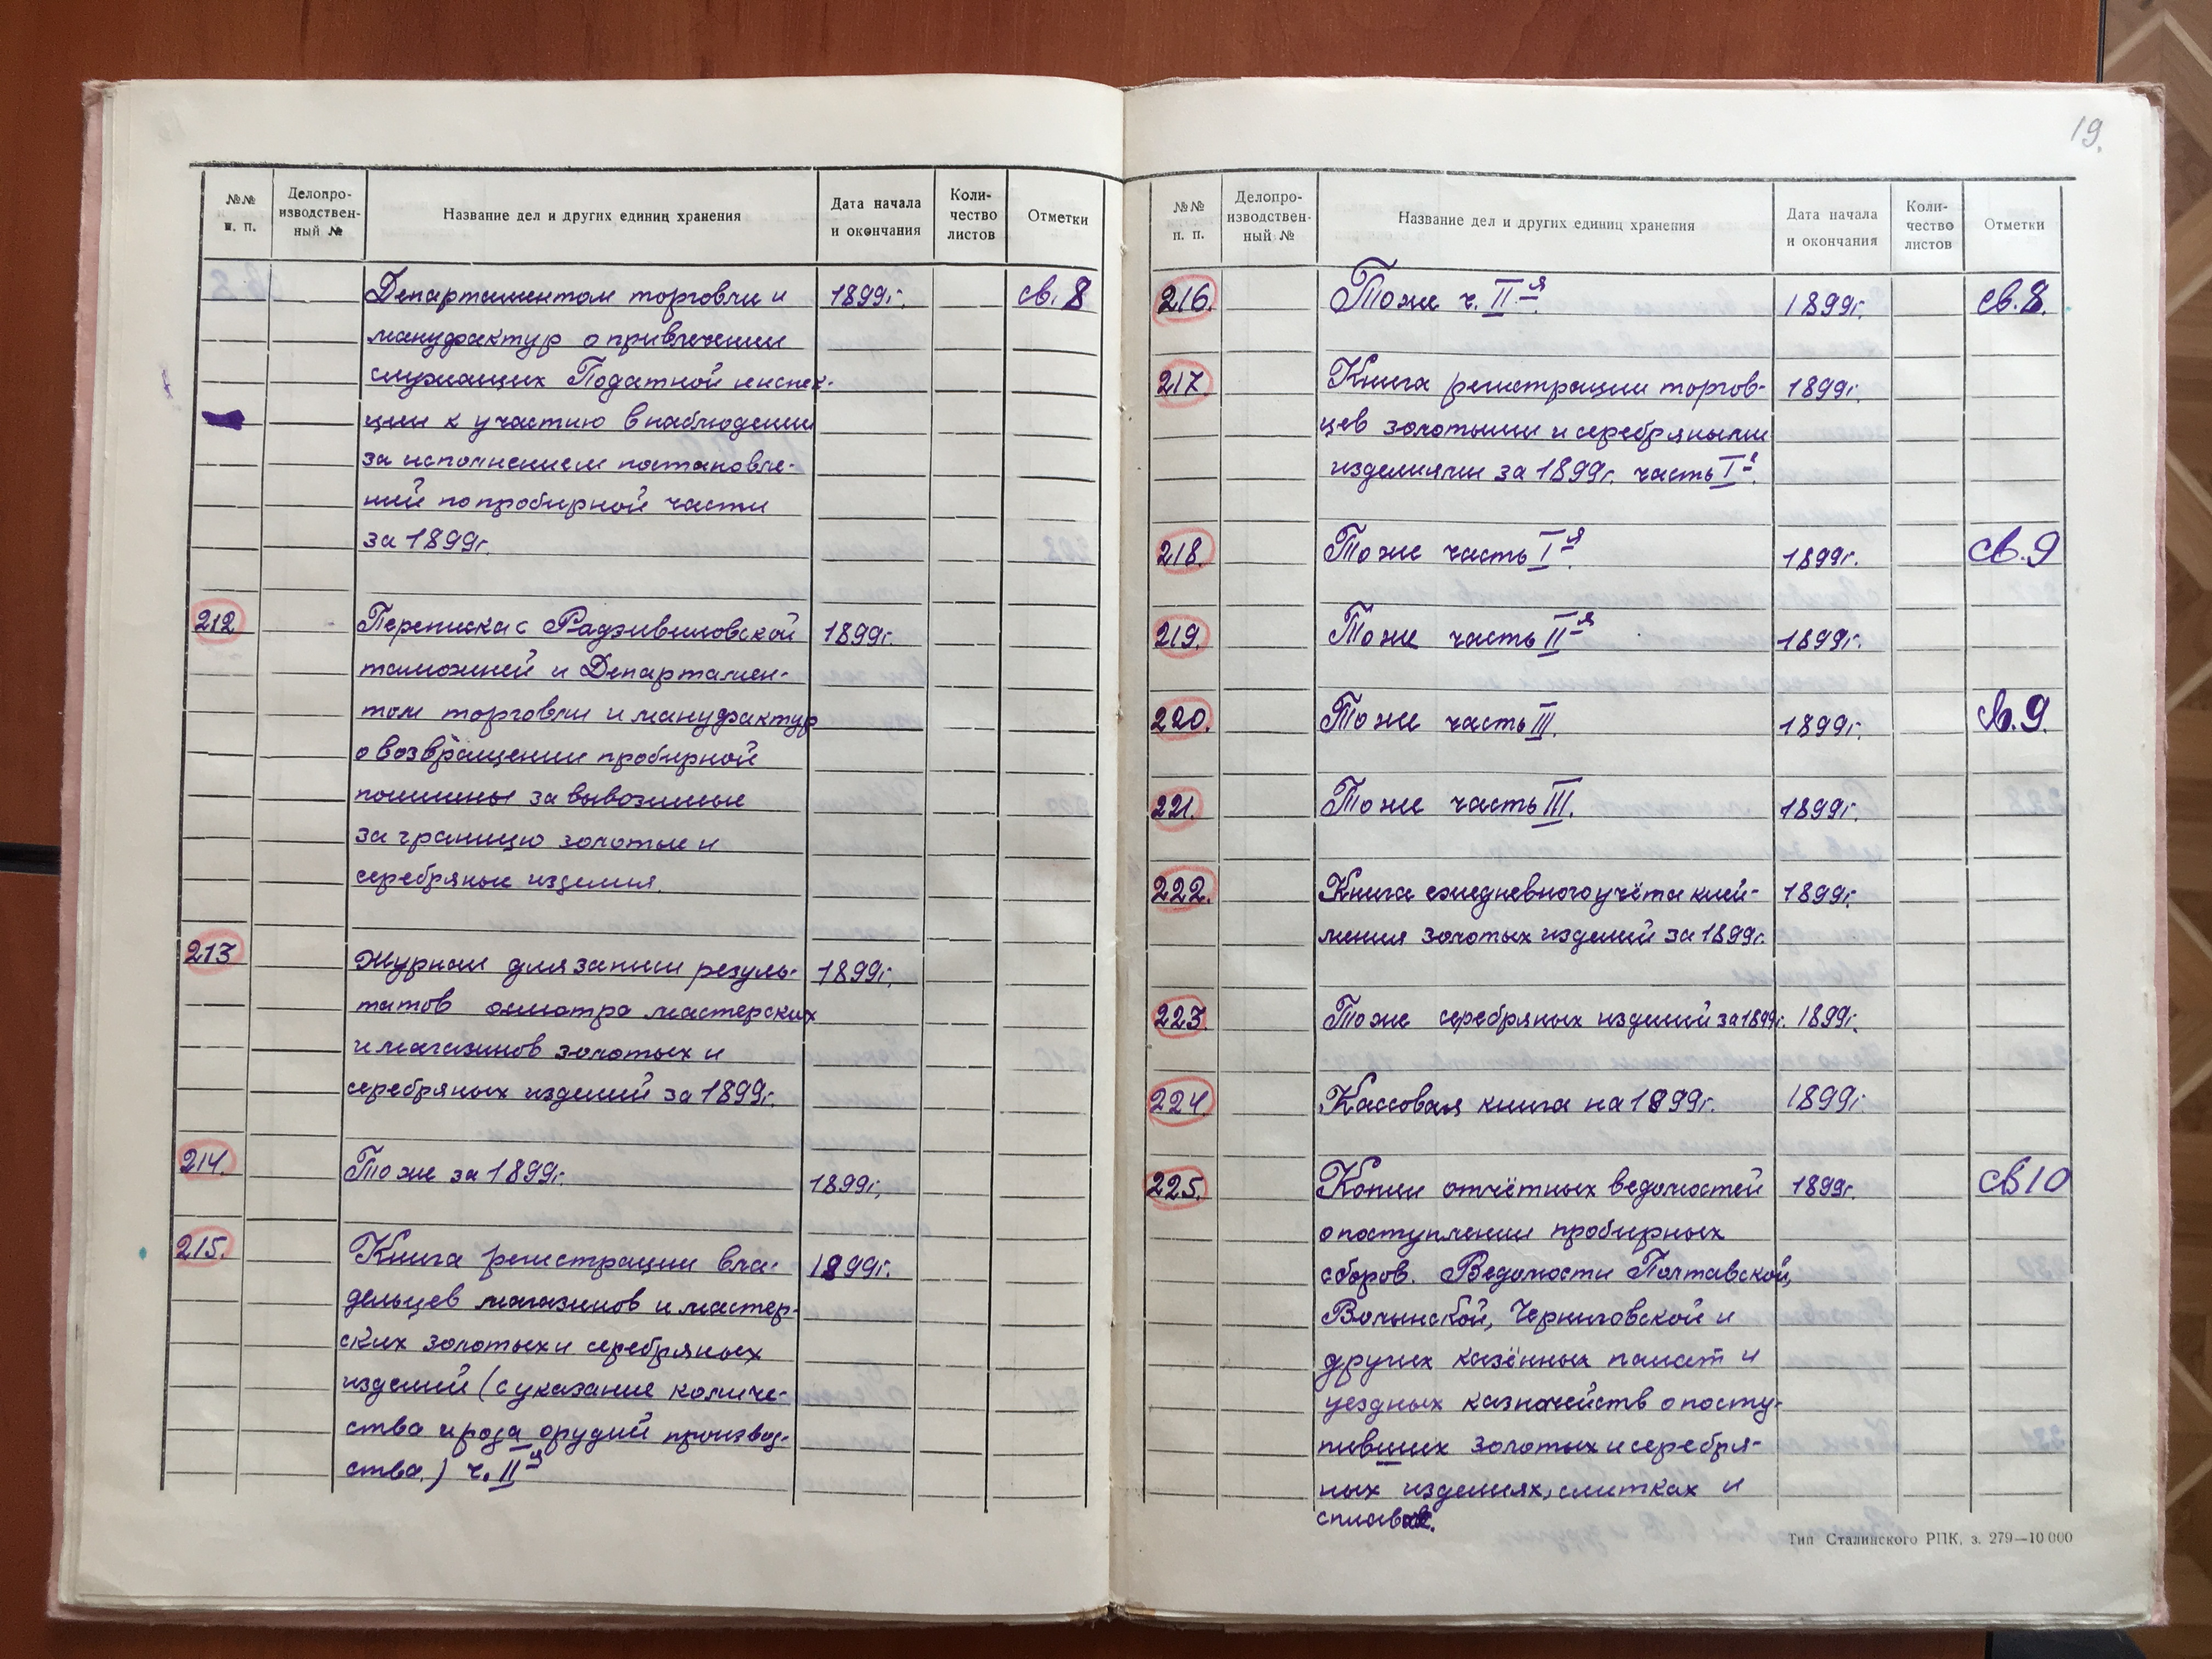 №№ п. п. Делопроизводствен-ный № Название дел и других единиц хранения Дата начала и окончания Коли-чество листов Отметки
Департаментом торговли и 1899г. св. 8
мануфактур о привлечении
служащих Податной инспек-
ции к участию в наблюдении
за исполнением постановле-
ний по пробирной части
за 1899г.
212 Переписка с Радзивиловской 1899г.
таможней и Департамен-
том торговли и мануфактур
о возвращении пробирной
пошлины за вывозимые
за границу золотые и
серебряные изделия.
213 Журнал для записи резуль- 1899г.
татов осмотра мастерских
и магазинов золотых и
серебряных изделий за 1899г.
214. То же за 1899г. 1899г.
215. Книга регистрации вла- 1899г.
дельцев магазинов и мастер-
ских золотых и серебряных
изделий (с указание количе-
ства и рода орудий производ-
ства.) ч. II-я
19.
№№ п. п. Делопро-изводствен-ный № Название дел и других единиц хранения Дата начала и окончания Коли-чество листов Отметки
216. То же ч. II-я. 1899г. св. 8.
217. Книга регистрации торгов- 1899г.
цев золотыми и серебряными
изделиями за 1899г. часть I-я.
218. То же часть I-я. 1899г. св. 9
219. То же часть II-я 1899г.
220. То же часть III. 1899г. св. 9.
221. То же часть III. 1899г.
222. Книга ежедневного учёта клей- 1899г.
мения золотых изделий за 1899г.
223. То же серебряных изделий за 1899г. 1899г.
224. Кассовая книга на 1899г. 1899г.
225. Копии отчётных ведомостей 1899г. св 10
о поступлении пробирных
сборов. Ведомости Полтавской,
Волынской, Черниговской и
других казённых палат и
уездных казначейств о посту-
пивших золотых и серебря-
ных изделиях, слитках и
сплавах.
Тип Сталинского РПК, з. 279—10 000